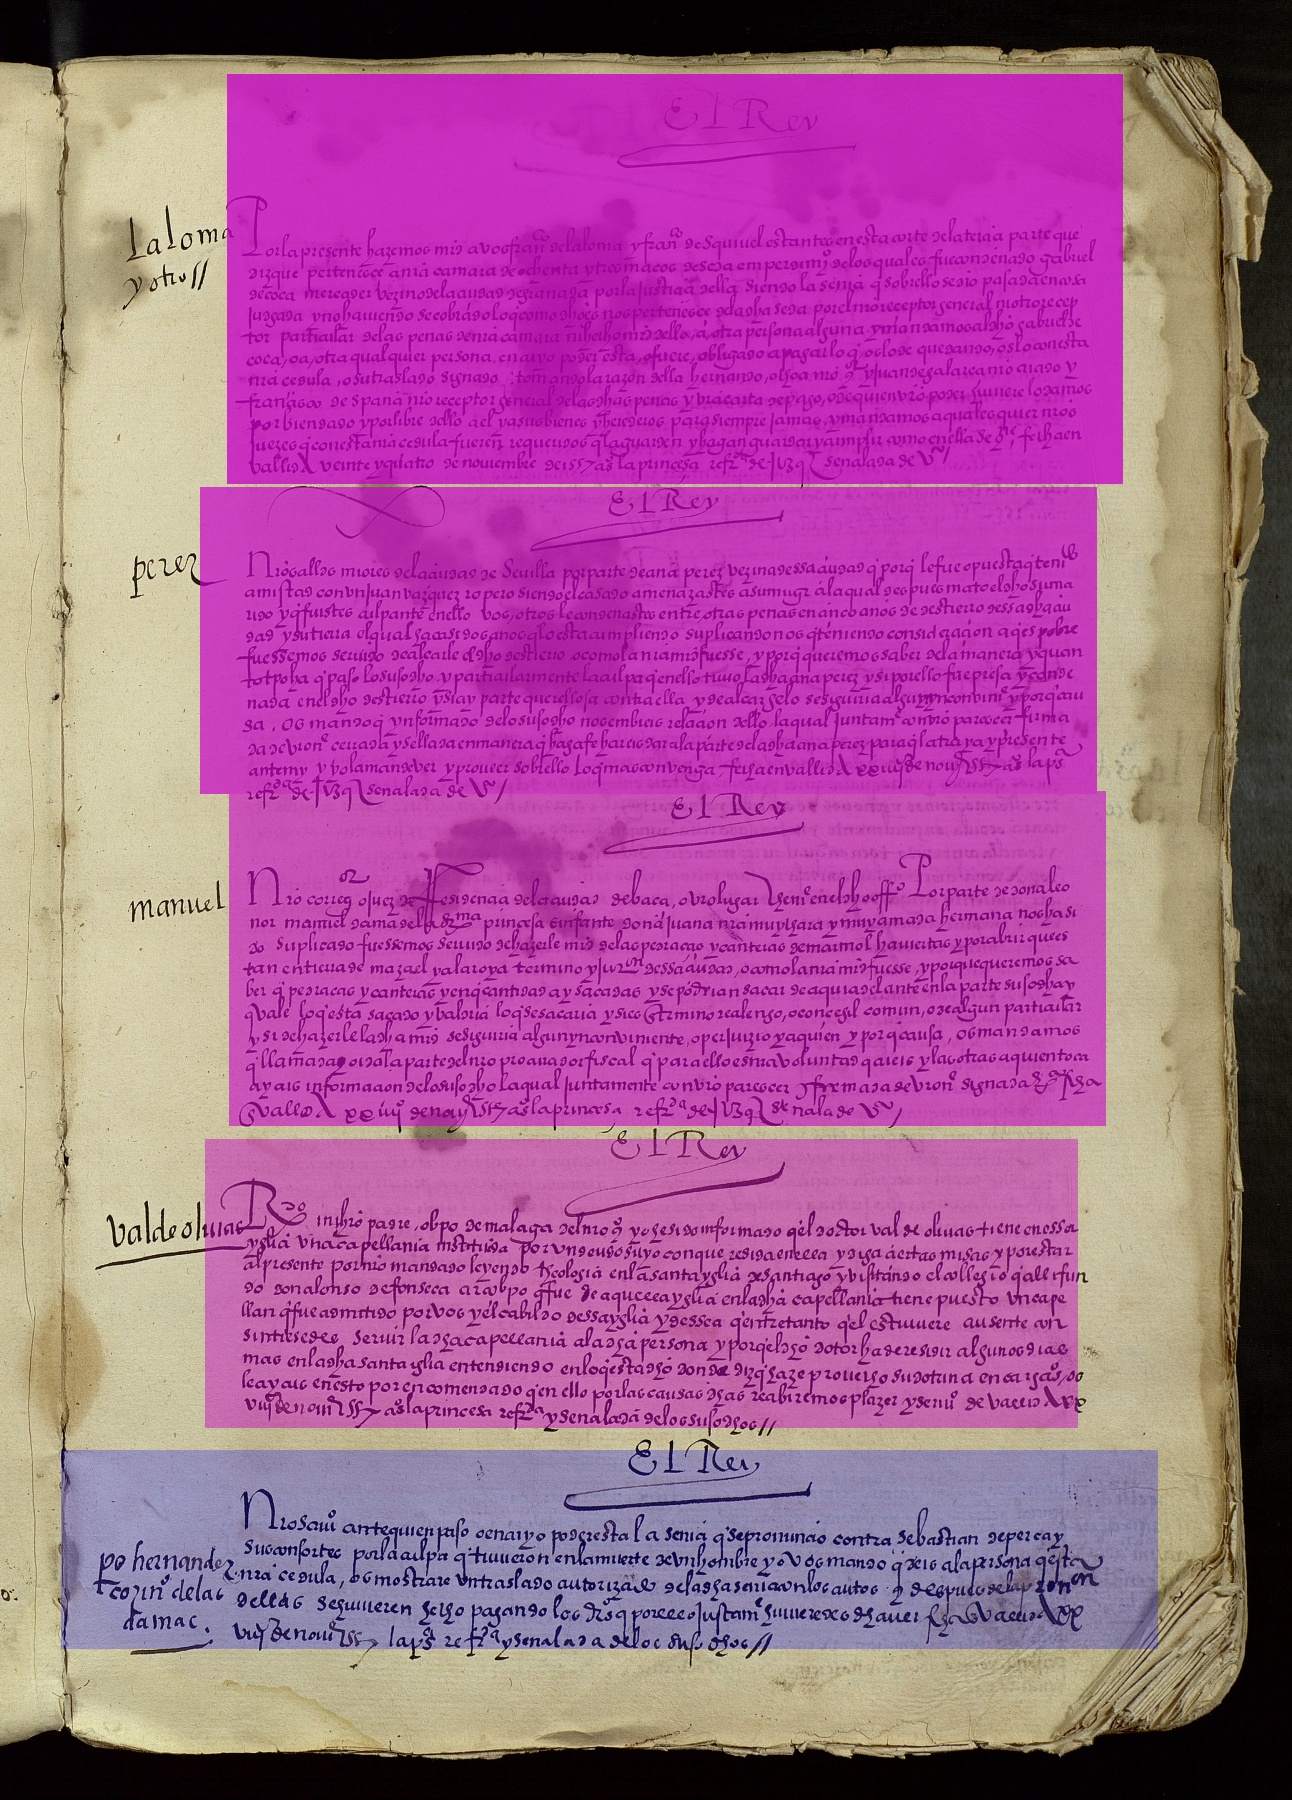 El Rey
la loma
y otro//
Por la presente hazemos mrd a vos fran de la loma y fran de Squivel estantes en esta corte de la tercia parte que
dizque pertenesce a nra camara de ochenta y tres maços de seda em perdimyº de los quales fue condenado gabriel
de coca mercader vezino de la ciudad de granada por la justicia della siendo la senia q sobrello se dio pasada en cosa
juzgada y no haviendo se cobrado lo q como dho es nos pertenesce de la dha seda por el nro receptor general ni otro recep
tor particular de las penas de nra camara ni hecho mrd dello, a, otra persona alguna y mandamos al dho gabriel de
coca, o a, otra qualquier persona, en cuyo poder esta, o fuere, obligado a pagarlo q, os lo de quedando, os lo con esta
nra cedula, o su traslado signado tomando la razon della hernando, ochoa nro cº y juan de galarça nro criado y
francisco de Spana nro receptor general de las dhas penas y vra carta de pago, o de quien vro poder huviere lo damos
por bien dado y por libre dello a el y a sus bienes y herederos para siempre jamas, y mandamos a quales quier nros
juezes q con esta nra cedula fueren requeridos q la guarden y hagan guardar y cumplir como en ella se qe fecha en
vallid A veinte y quatro de noviembre de 1557 aºs la princesa refrda de señalada de
El Rey
perez
Nros allds mayores de la ciudad de Sevilla por parte de ana perez vezina dessa ciudad q porq le fue opuesta q tenia
amistad con un juan vazquez ropero siendo el casado amenazastes a su muger a la qual despues mato el dho su ma
rido y q fuistes culpante en ello vos, otros le condenastes entre, otras penas en cinco años de destierro dessa dha ciu
dad y su tierra el qual ha casi dos anos q lo esta cumpliendo suplicandonos q teniendo consideracion a q es pobre
fuessemos servido de alçarle el dho destierro, o como la nra mrd fuesse, y porq queremos saber de la manera y quan
to tpo ha q paso lo susodho, y particularmente la culpa q en ello tuvo la dha ana perez y si por ello fue presa y conde
nada en el dho destierro y si ay parte querellosa contra ella y de alçar selo se siguiria algun ynconviniº y por q cau
sa, os mando q ynformado de lo susodho nos embieis relacion dello, la qual juntamº con vro parescer firma
da de vro nº cerrada y sellada en manera q haga fe hareis dar a la parte de la dha ana perez para q la traya y presente
ante my y yo la mande ver y proveer sobrello lo q mas convenga fecha en vallid A xx iiijº de novyº 1557 aºs la prsª
refrda de señalada de
El Rey
manuel
Nro correg or, o juez de Residencia de la ciudad de baca, o vro lugar theniº en el dho offº Por parte de dona leo
nor manuel dama de la serma princesa e infante dona juana nra muy chara y muy amada hermana nos ha si
do suplicado fuessemos servido de hazerle mrd de las pedraças y canteras de marmol haviertas y por abrir que es
tan en tierra de mazael y alaroya termino y jurºn dessa ciudad, o como la nra mrd fuesse, y porque queremos sa
ber q pedraças y canteras y en q cantidad ay sacadas y se podrian sacar de aqui adelante en la parte susodha y
quale lo q esta sacado y valdria lo q se sacaria y si es termino realengo, o concegil comun, o de algun particular
y si de hazerle la dha mrd se siguiria algun ynconviniente, o perjuizio y a quien y por q causa, os mandamos
q llamada, oida la parte del nro procurador fiscal q para ello es nra voluntad q aieis y las otras a quien toca
ayais informacion de lo susodho la qual juntamente con vro parescer firmada de vro nº signada
vallid A xx iiijº de novyº 1557 aºs la princesa refrda de señalada de
El Rey
valdeolivas
Rdo in xpo padre, obpo de malaga del nro cº yo he sido informado q el doctor val de olivas tiene en essa
yglia una capellania instituida por un deudo suyo con que resida en ella y diga ciertas misas y por estar
al presente por nro mandado leyendo theologia en la santa yglia de santiago y visitando el collegio q alli fun
do don alonso de fonseca arçobpo q fue de aquella yglia en la dha capellania tiene puesto un cape
llan q fue admitido por vos y el cabildo dessa yglia y dessea q entretanto q el estuviere ausente con
sintiesedes servir la dha capellania a la dha persona y porq el dho dotor ha de residir algunos dias
mas en la dha santa iglia entendiendo en lo q esta dho donde dizq haze provecho su dotrina encargaºs, os
le ayais en esto por encomendado q en ello por las causas dhas recibiremos plazer y serviº de vallid A xx
viijº de noviº 1557 aºs la princesa refrda y señalada de los susodhos//
El Rey
pº hernandez
cozinº de las
damas.
Nro scrivº ante quien paso o en cuyo poder esta la senia q se pronuncio contra sebastian de perea y
sus consortes por la culpa q tuvieron en la muerte de un hombre yo vos mando q deis a la persona q esta
nra cedula, os mostrare un traslado autorizado de la dha senia con los autos q despues de la
dellas se huvieren hecho pagando los drºs q por ello justamº huvieredes de haver fha vallid A xx
viijº de noviº 1557 la prsª refrda y señalada de los susodhos//